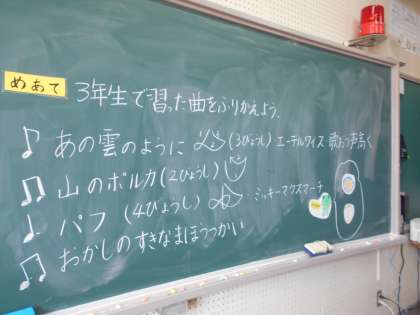 めあて 3年生で習った曲をふりかえよう.
あの雲のように (3びょうし) エーデルワイス 歌おう声高く
山のポルカ (2びょうし)
パフ (4びょうし) ・ミッキーマウスマーチ
おかしのすきなまほうつかい